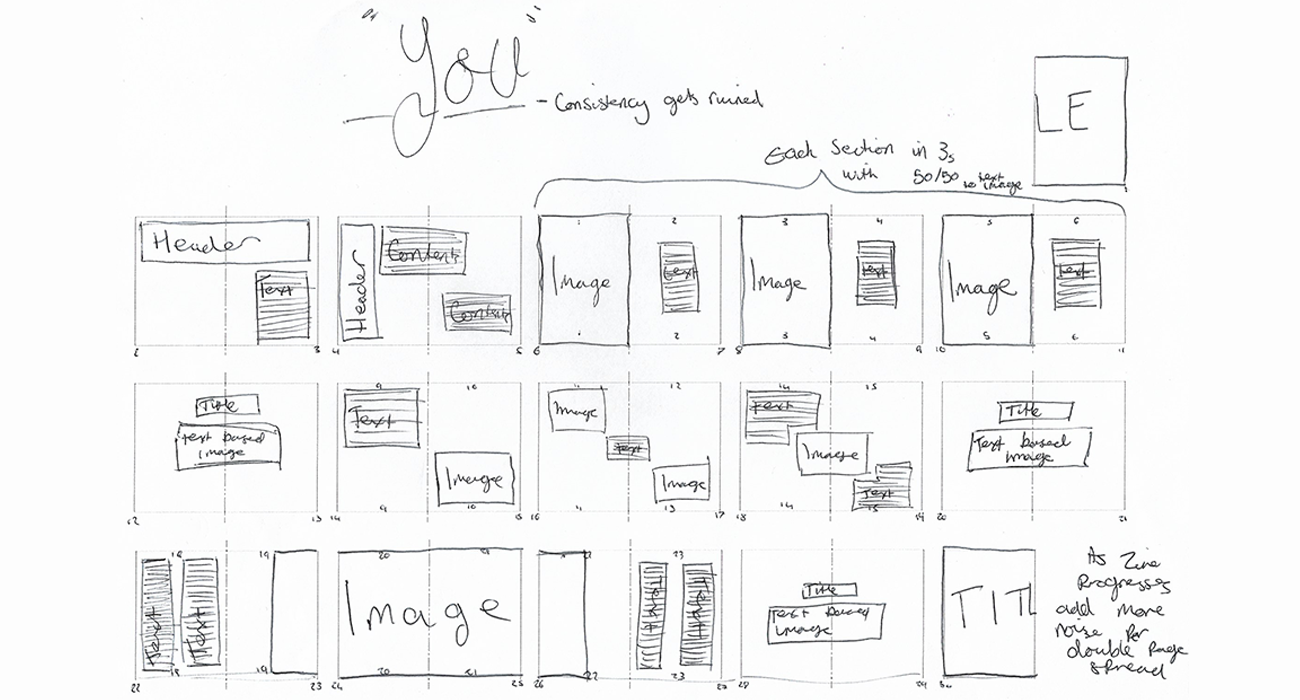 "You"
- Consistency gets ruined
LE
Each Section in 3s
with 50/50 text
to image
Header
Text
2 3
Header
Content
Content
4 5
1 2
Image text
2
6 7
3 4
Image text
3 4
8 9
5 6
Image text
5 6
10 11
Title
text based
image
12 13
9 10
Text
Image
9 10
14 15
12
Image
text
Image
16 17
14 15
Text
Image
Text
14 15
18
Title
Text based
image
20 21
19
Text Text
18 19
22 23
20 21
Image
20 21
25
23
Text Text
22 23
26
Title
Text based
image
28
TITL
As Zine
Progresses
add more
noise per
double page
spread